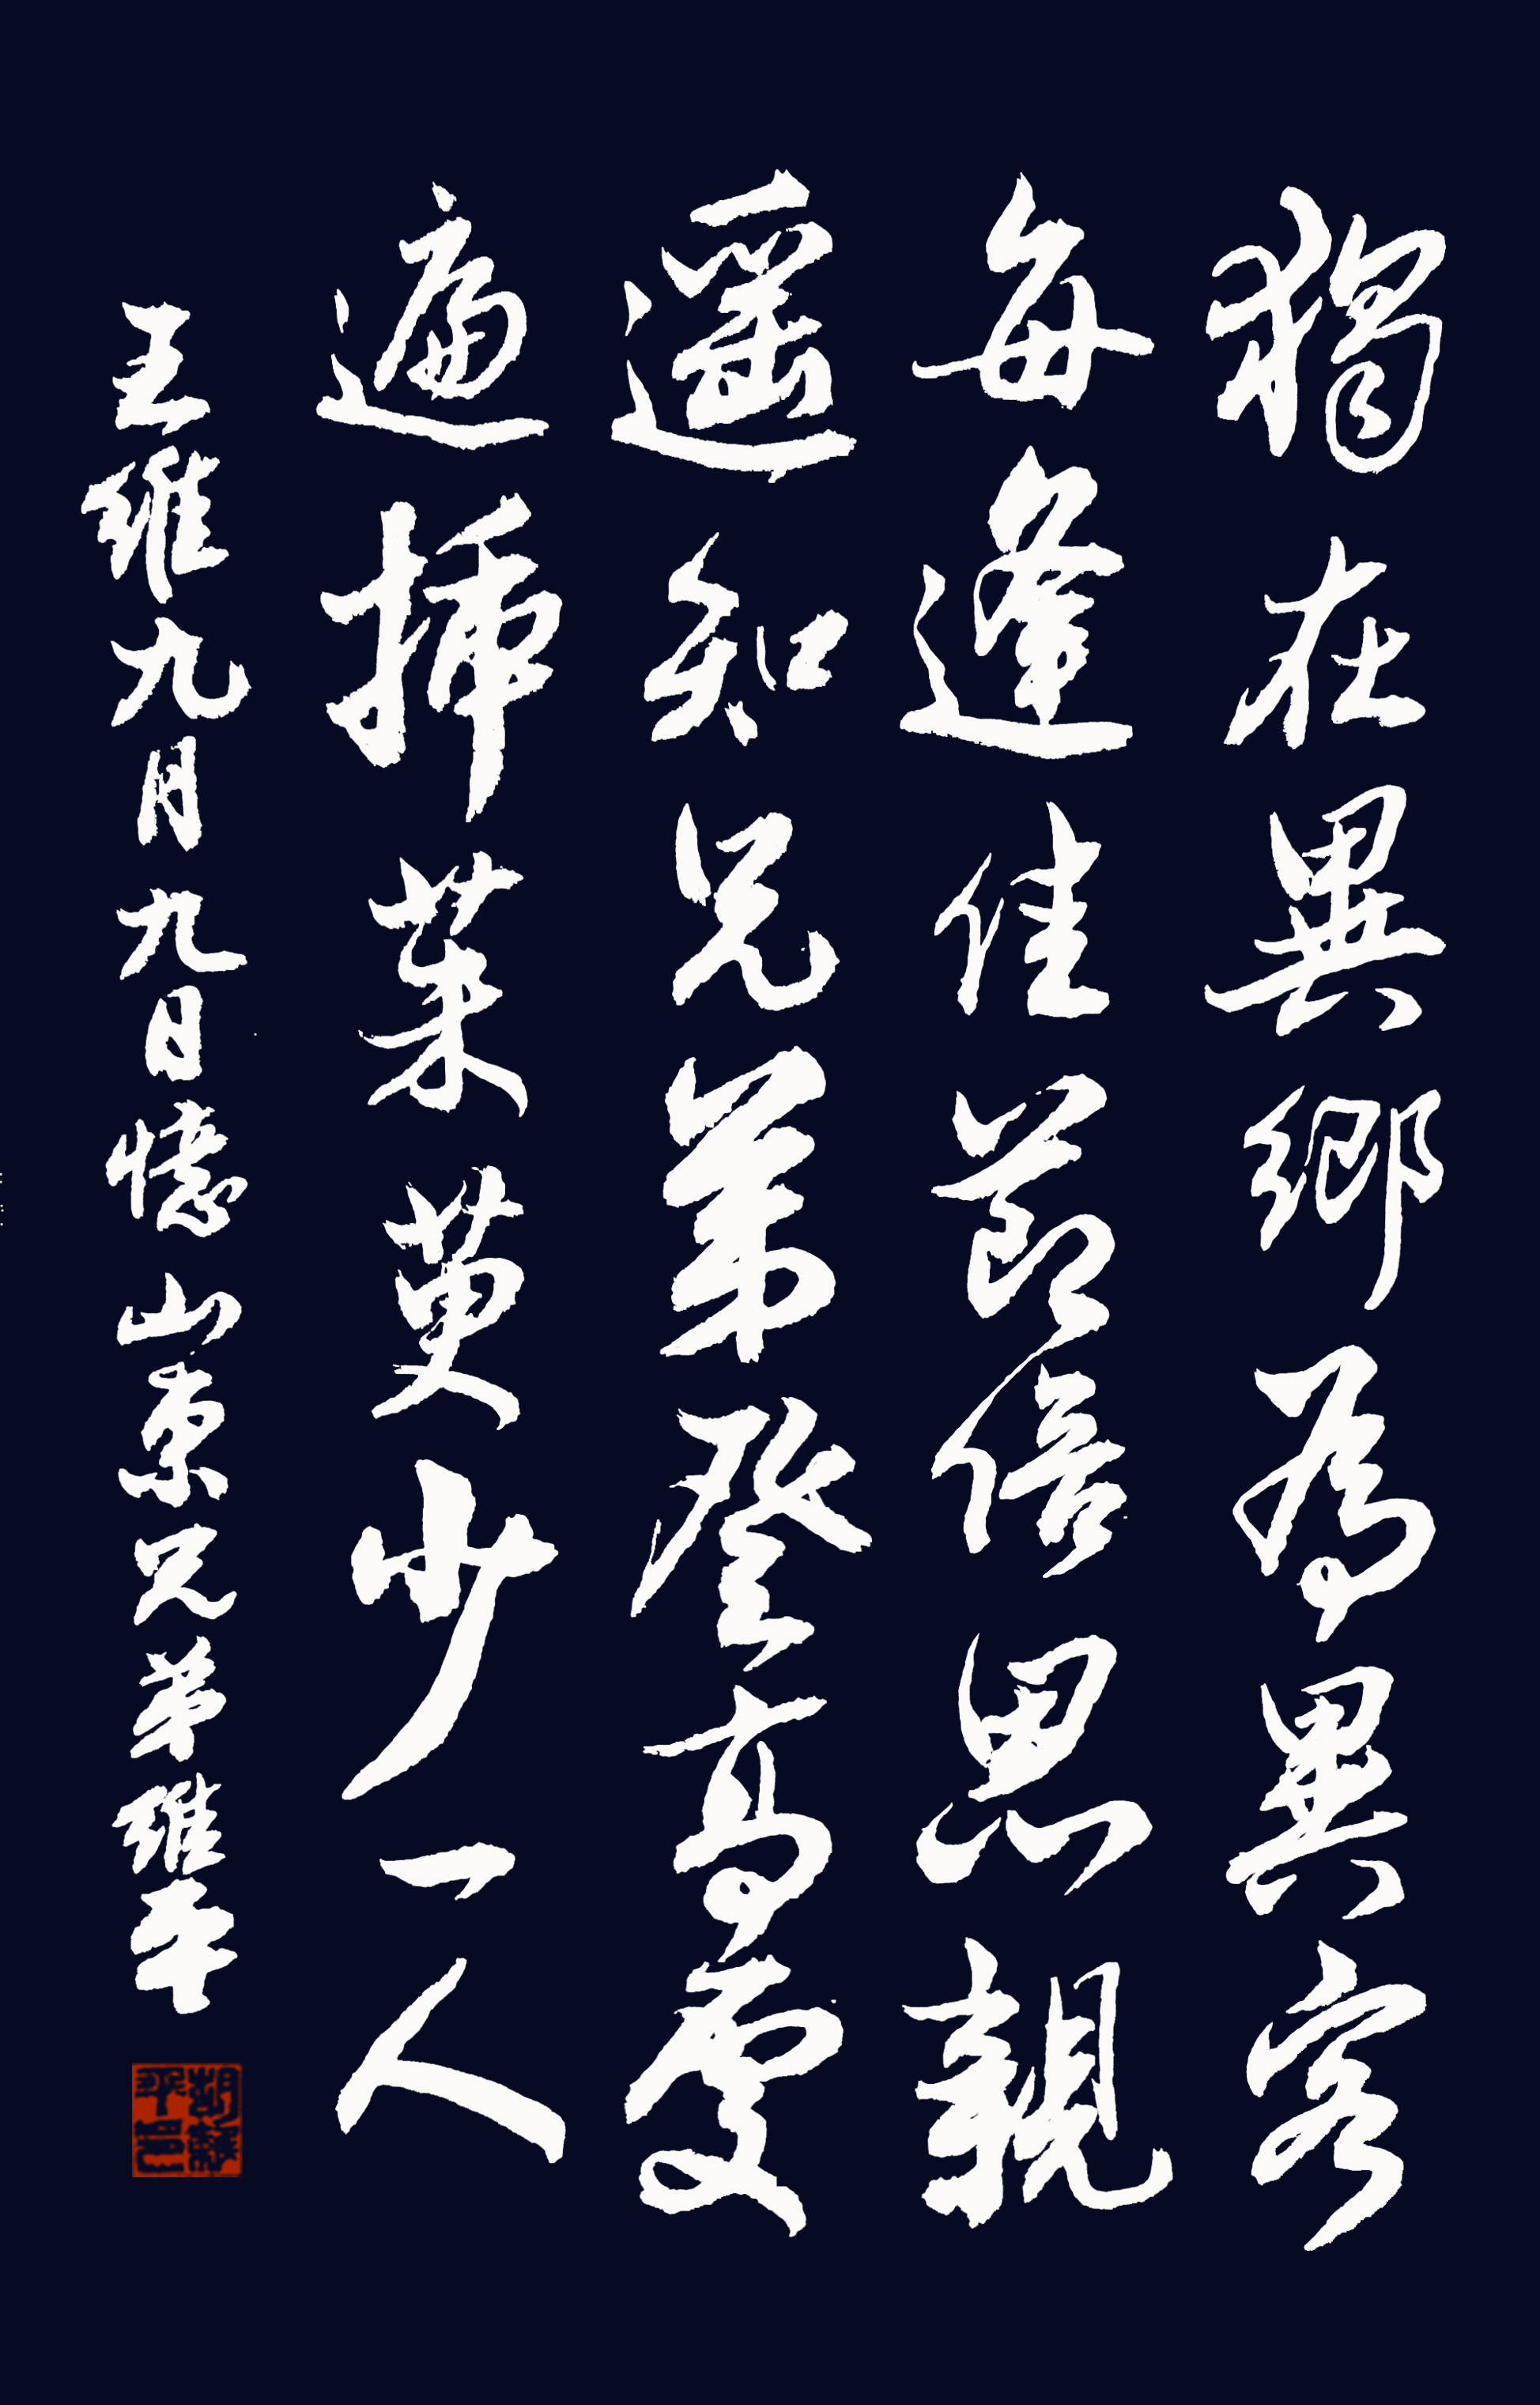 獨在異鄉為異客
每逢佳節倍思親
遥知兄弟登高處
遍插茱萸少一人
王維九月九日憶山東兄弟維平